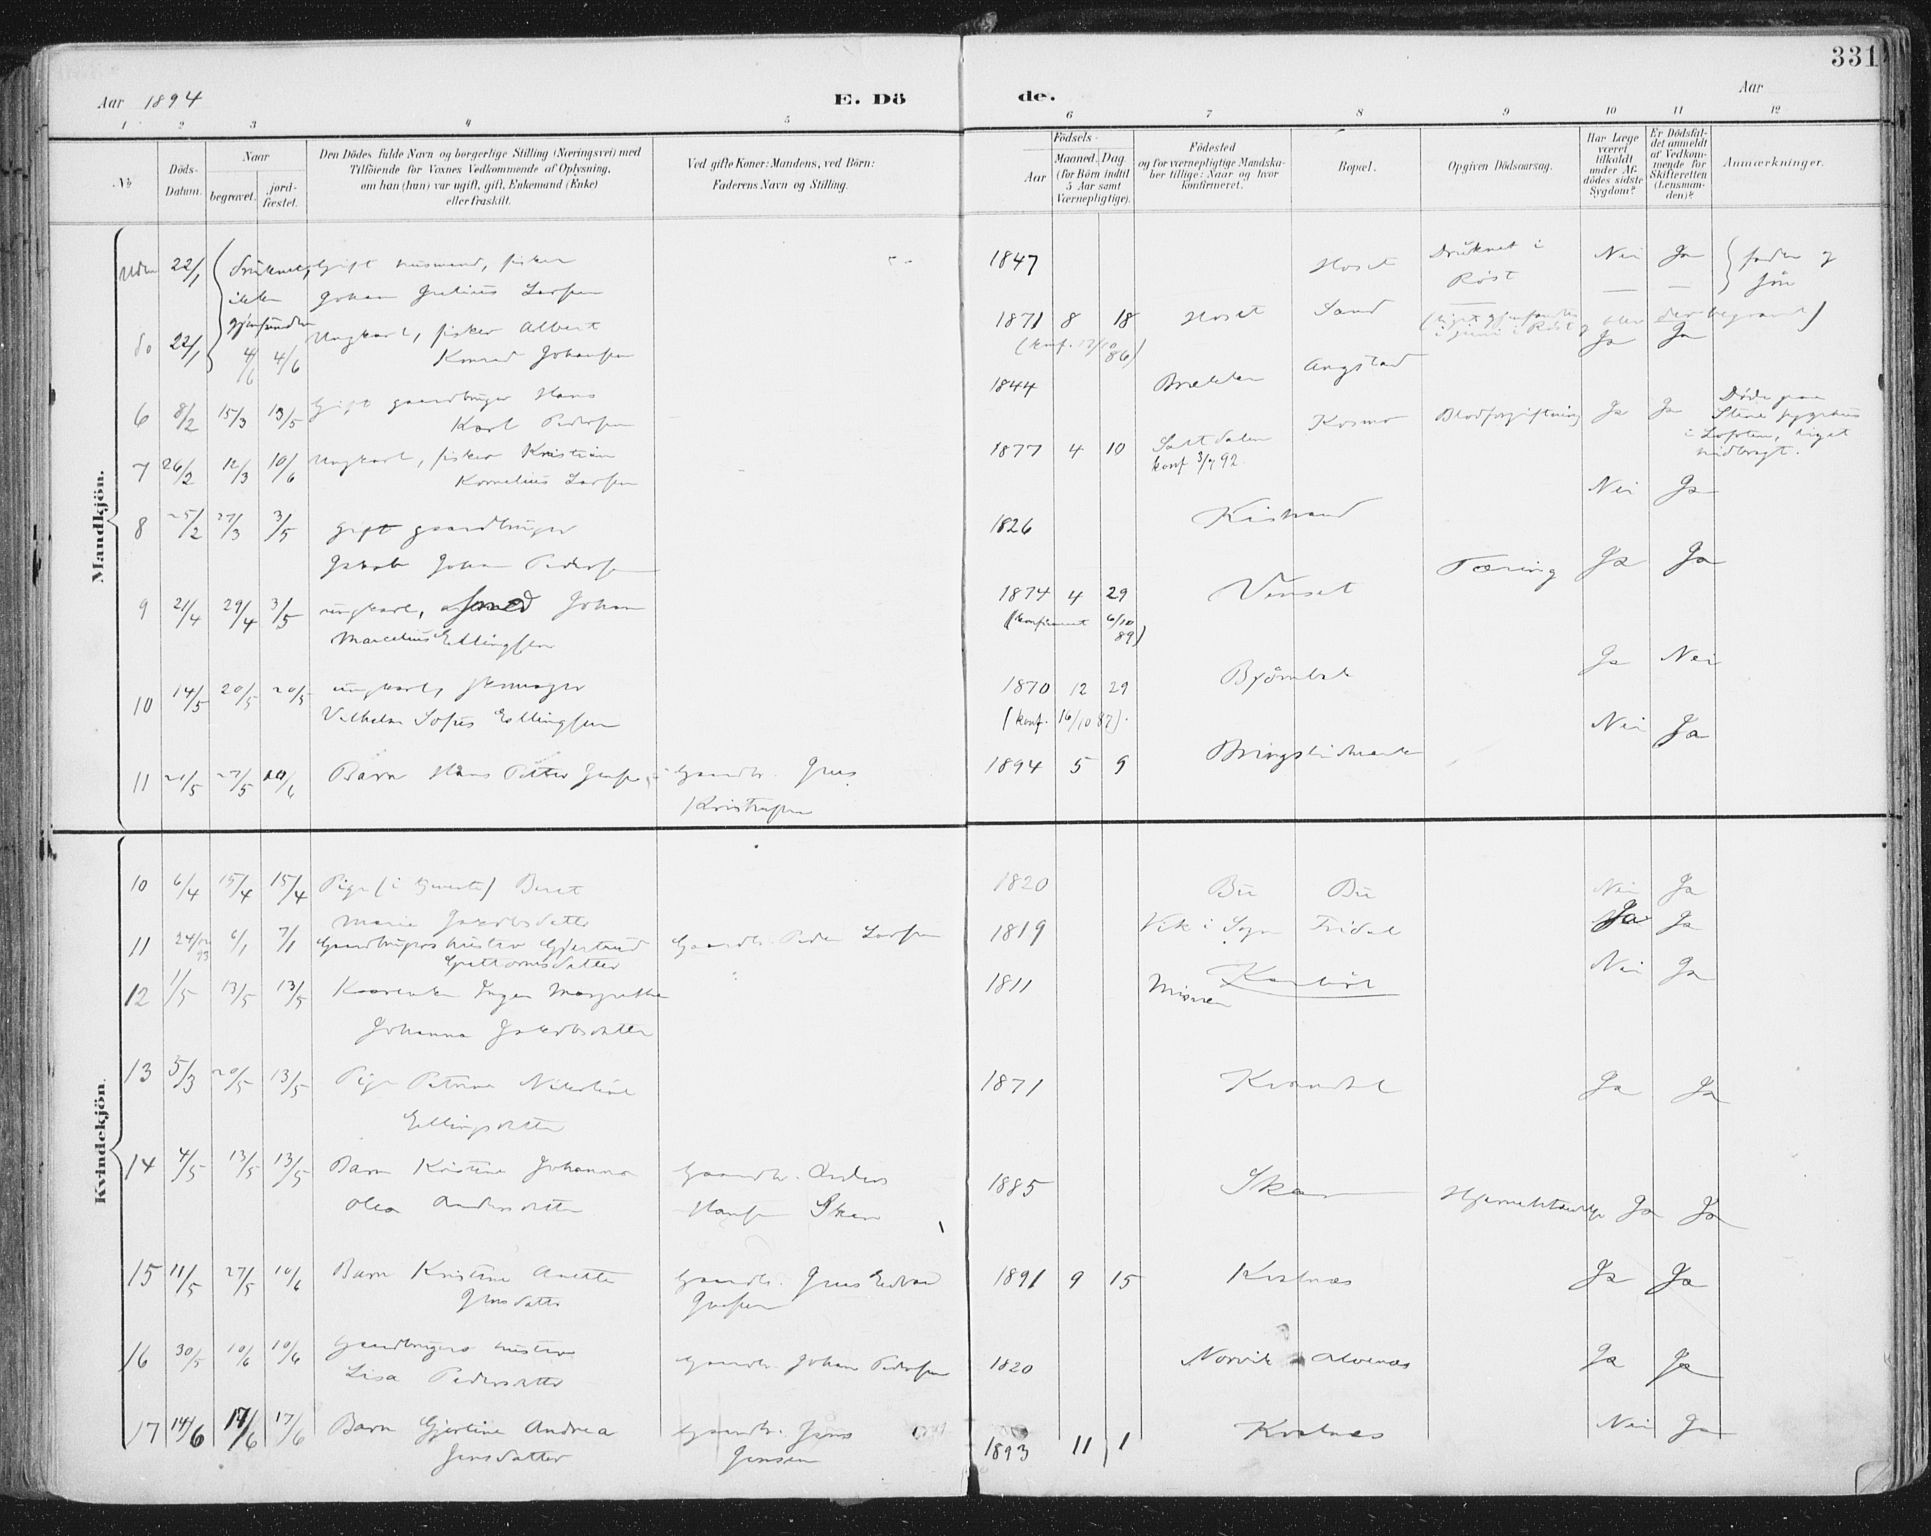 331
Aar 1894
E. Dö
de.
Aar
1 2 3 4 5 6 7 8 9 10 11 12
№
Döds-
Datum.
Naar
begravet.
jord-
fæstet.
Den Dödes fulde Navn og borgerlige Stilling (Næringsvei) med
Tilföiende for Voxnes Vedkommende af Oplysning,
om han (hun) var ugift, gift, Enkemand (Enke)
eller fraskilt.
Ved gifte Koner: Mandens, ved Börn:
Faderens Navn og Stilling.
Födsels-
Aar
Maaned. Dag
(for Börn indtil
5 Aar samt
Værnepligtige).
Födested
og for værnepligtige Mandska-
ber tillige: Naar og hvor
konfirmeret.
Bopæl.
Opgiven Dödsaarsag.
Har Læge
været
tilkaldt
under Af-
dödes sidste
Sygdom?
Er Dödsfal-
det anmeldt
af Vedkom-
mende for
Skifteretten
(Lensman-
den)?
Anmærkninger.
Mandkjön.
Uden 22/1 druknet, Gift husmand, fisker 1847 Hoset Druknet i Nei Ja fader og
ikke Johan Julius Larsen Røst sön
gjenfunden
do 22/1 4/6 4/6 Ungkarl, fisker Albert 1871 8 18 Hoset Sand
Konrad Johansen (konf. 17/10 86)
6 8/2 15/3 13/5 Gift gaardbruger Hans 1844 Brækken Angstad Ja Ja
Karl Pedersen
7 26/2 12/3 10/6 Ungkarl, fisker Kristian 1877 4 10 Saltdalen Kosmo Blodforgiftning Ja Ja Døde paa
Kornelius Larsen konf 3/7 92. Stene sygehus
i Lofoten, liget
nedbragt.
8 25/2 27/3 3/5 gift gaardbruger 1826 Kistrand Nei Ja
Jakob Johan Pedersen
9 21/4 29/4 3/5 ungkarl, smed Johan 1874 4 29 Venset Tæring Ja Ja
Marcelius Ellingsen (konfirmert 6/10 89)
10 14/5 20/5 20/5 ungkarl, skomager 1870 12 29 Bjørnbak Ja Nei
Vilhelm Sofus Ellingsen (konf. 16/10 87).
11 21/5 27/5 10/6 Barn Hans Petter Jensen Gaardbr. Jens 1894 5 9 Bringslimarken Nei Ja
Kristensen
Kvindekjön.
10 6/4 15/4 15/4 Pige Beret 1820 Bu Bu Nei Ja
Marie Jakobsdatter
11 24/12 93 6/1 7/1 Gaardbrugers hustru Gjertrud Gaardb. Peder Larsen 1819 Vik i Sogn Ja Ja
Guttormsdatter
12 1/5 13/5 13/5 Inger Margrethe 1811 Misvær Nei Ja
Johanna Jakobsdatter
13 5/3 20/5 13/5 Pige Petrine Nikoline 1871 Kvandal Ja Ja
Ellingsdatter
14 4/5 13/5 13/5 Barn Kristine Johanna Gaardbr. Anders 1885 Skar Ja Ja
Olea Andersdatter Hansen Skar
15 11/5 27/5 10/6 Barn Kristine Anette Gaardb. Jens Edvard 1891 9 15 Kvalnæs Ja Ja
Jensdatter Jensen
16 30/5 10/6 10/6 Gaardbrugers hustru Gaardbr. Johan Pedersen 1820 Norvik Alvenæs Ja Ja
Lisa Pedersdatter
17 14/6 17/6 17/6 Barn Gjertine Andrea Gaardbr. Jens 1893 11 1 Kvalnæs Nei Ja
Jensdatter Jensen